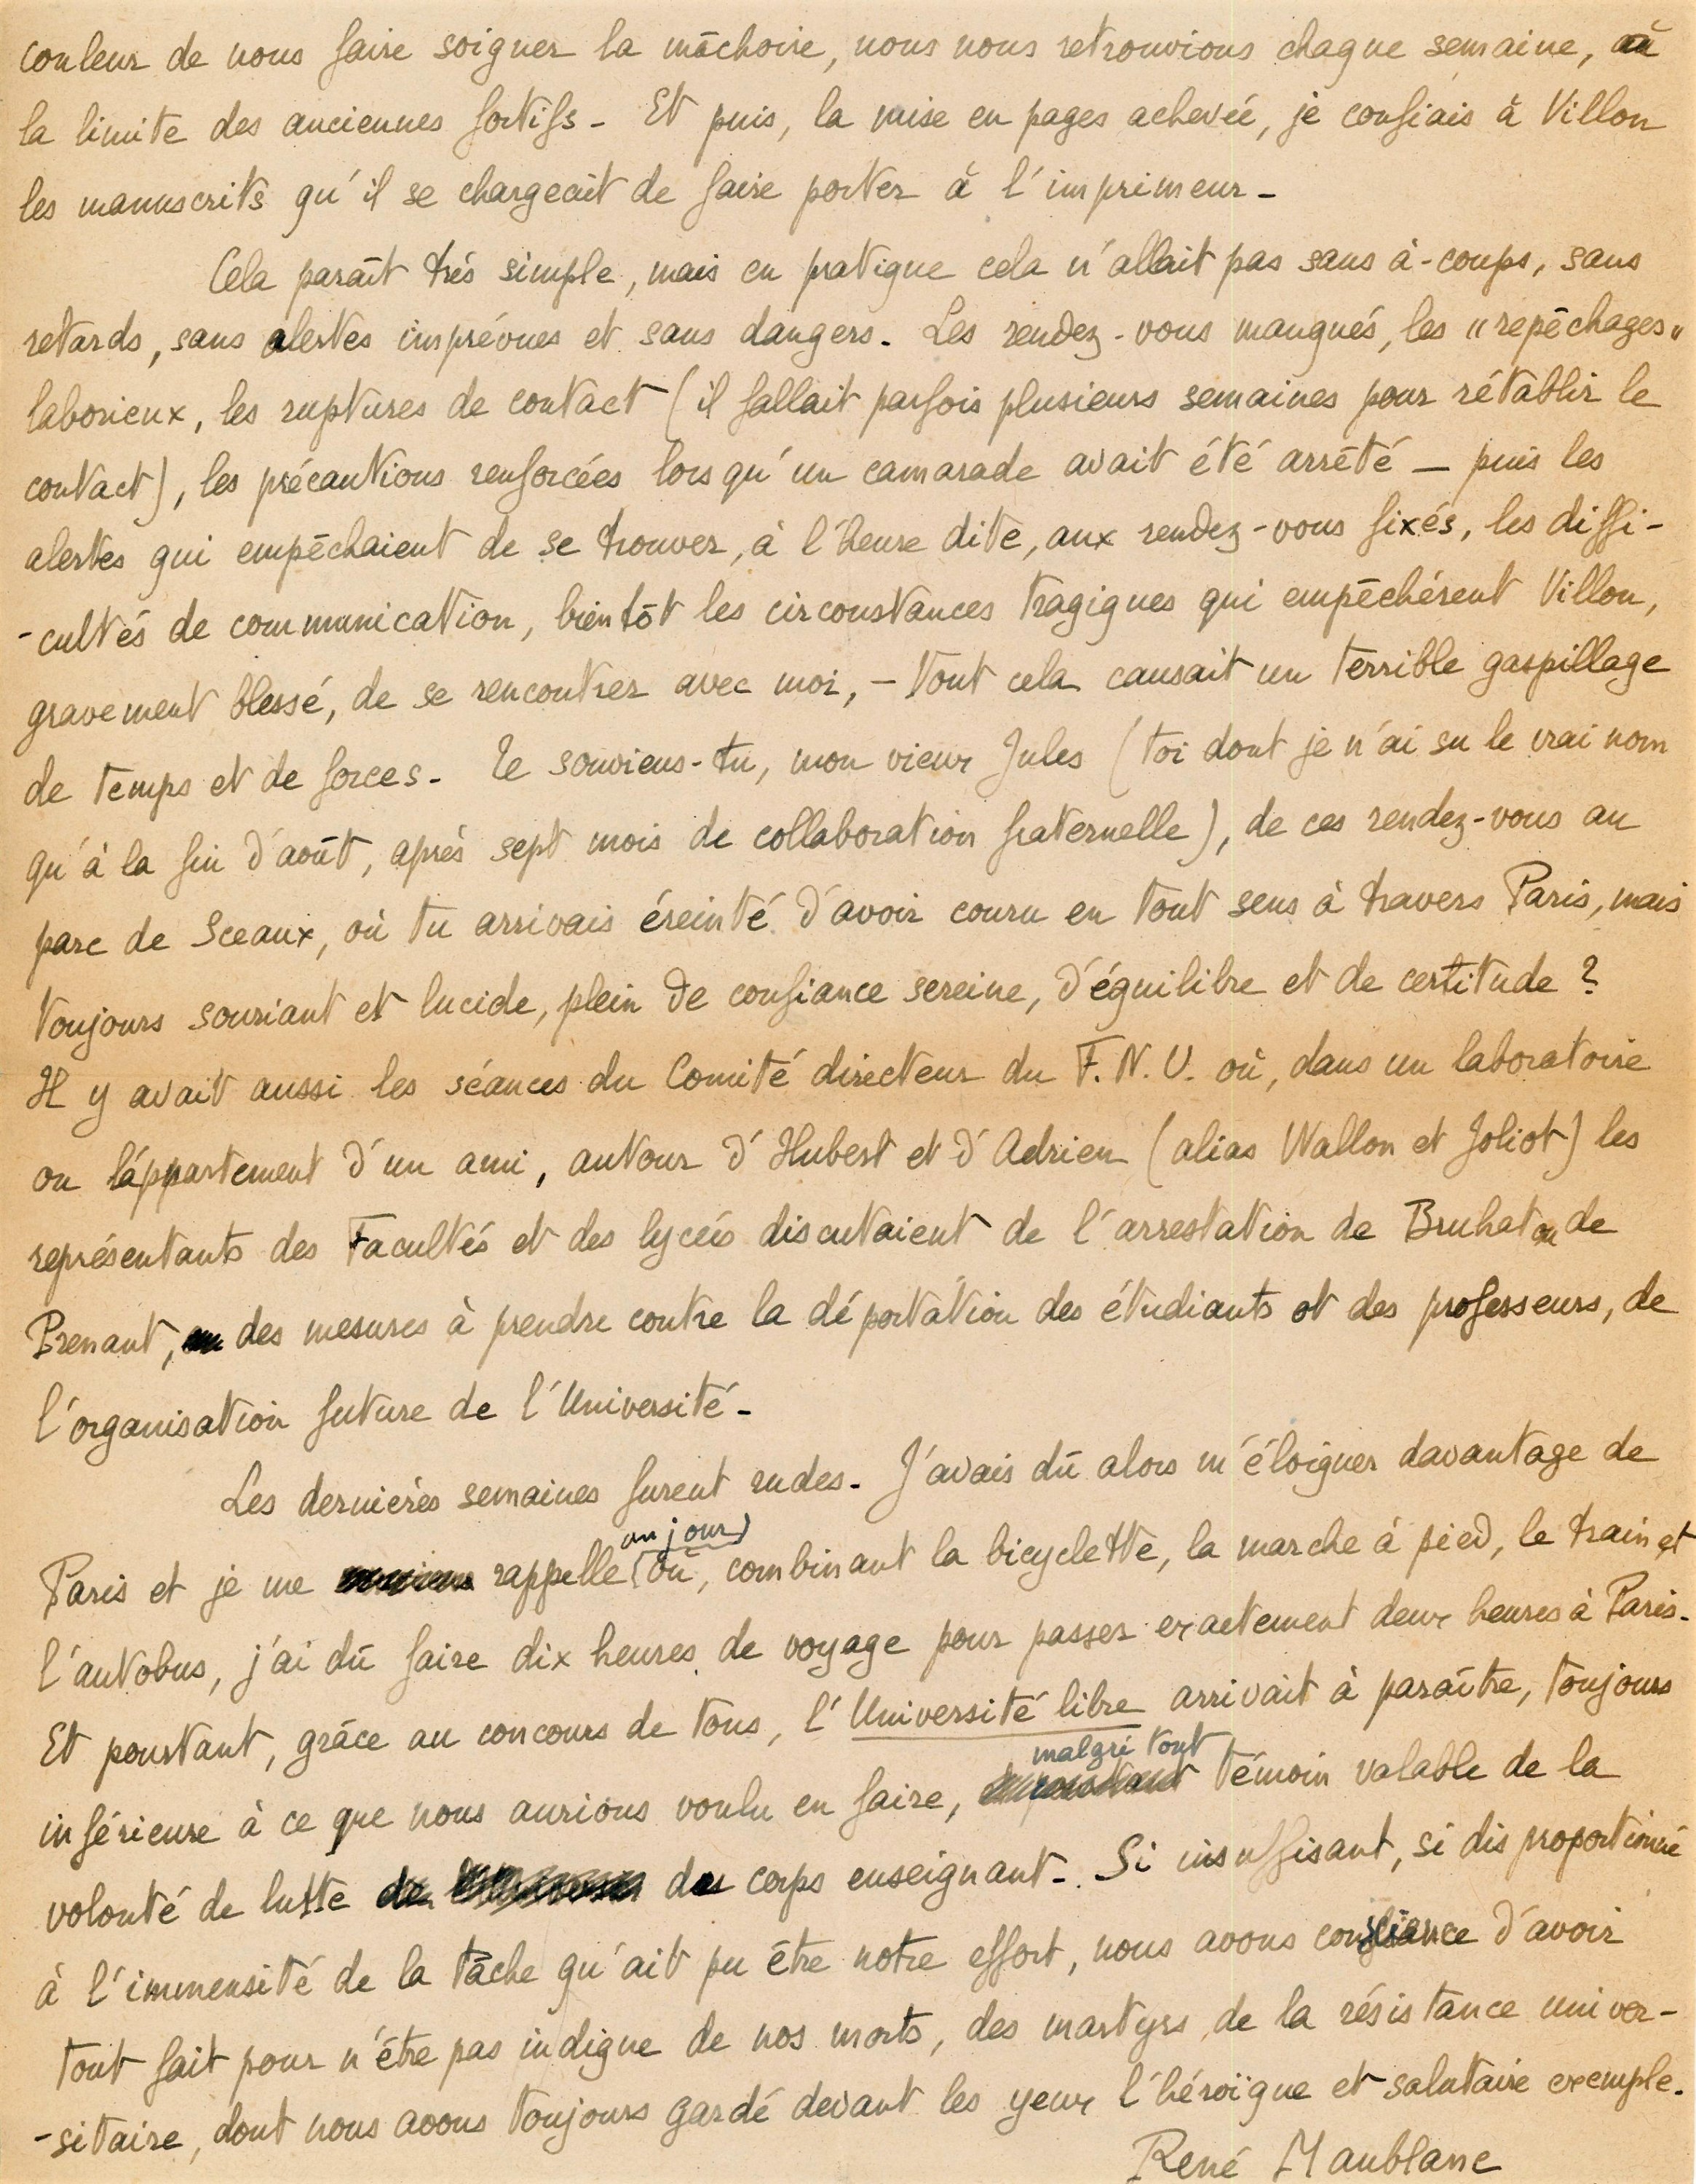 couleur de nous faire soigner la mâchoire, nous nous retrouvions chaque semaine, à
la limite des anciennes fortifs - Et puis, la mise en pages achevée, je confiais à Villon
les manuscrits qu'il se chargeait de faire porter à l'imprimeur -
Cela paraît très simple, mais en pratique cela n'allait pas sans à-coups, sans
retards, sans alertes imprévues et sans dangers. Les rendez-vous manqués, les "repêchages"
laborieux, les ruptures de contact (il fallait parfois plusieurs semaines pour rétablir le
contact), les précautions renforcées lorsqu'un camarade avait été arrêté - puis les
alertes qui empêchaient de se trouver, à l'heure dite, aux rendez-vous fixés, les diffi-
-cultés de communication, bientôt les circonstances tragiques qui empêchèrent Villon,
gravement blessé, de se rencontrer avec moi, - tout cela causait un terrible gaspillage
de temps et de forces - Te souviens-tu, mon vieux Jules (toi dont je n'ai su le vrai nom
qu'à la fin d'août, après sept mois de collaboration fraternelle), de ces rendez-vous au
parc de Sceaux, où tu arrivais éreinté d'avoir couru en tout sens à travers Paris, mais
toujours souriant et lucide, plein de confiance sereine, d'équilibre et de certitude ?
Il y avait aussi les séances du Comité directeur du F.N.U. où, dans un laboratoire
ou l'appartement d'un ami, autour d'Hubert et d'Adrien (alias Wallon et Joliot) les
représentants des Facultés et des lycées discutaient de l'arrestation de Bruhat ou de
Prenant, des mesures à prendre contre la déportation des étudiants et des professeurs, de
l'organisation future de l'Université -
Les dernières semaines furent rudes. J'avais dû alors m'éloigner davantage de
un jour
Paris et je me rappelle où, combinant la bicyclette, la marche à pied, le train et
l'autobus, j'ai dû faire dix heures de voyage pour passer exactement deux heures à Paris.
Et pourtant, grâce au concours de tous, l'Université libre arrivait à paraître, toujours
malgré tout
inférieure à ce que nous aurions voulu en faire, témoin valable de la
volonté de lutte du corps enseignant - Si insuffisant, si disproportionné
à l'immensité de la tâche qu'ait pu être notre effort, nous avons conscience d'avoir
tout fait pour n'être pas indigne de nos morts, des martyrs de la résistance univer-
-sitaire, dont nous avons toujours gardé devant les yeux l'héroïque et salutaire exemple.
René Maublanc